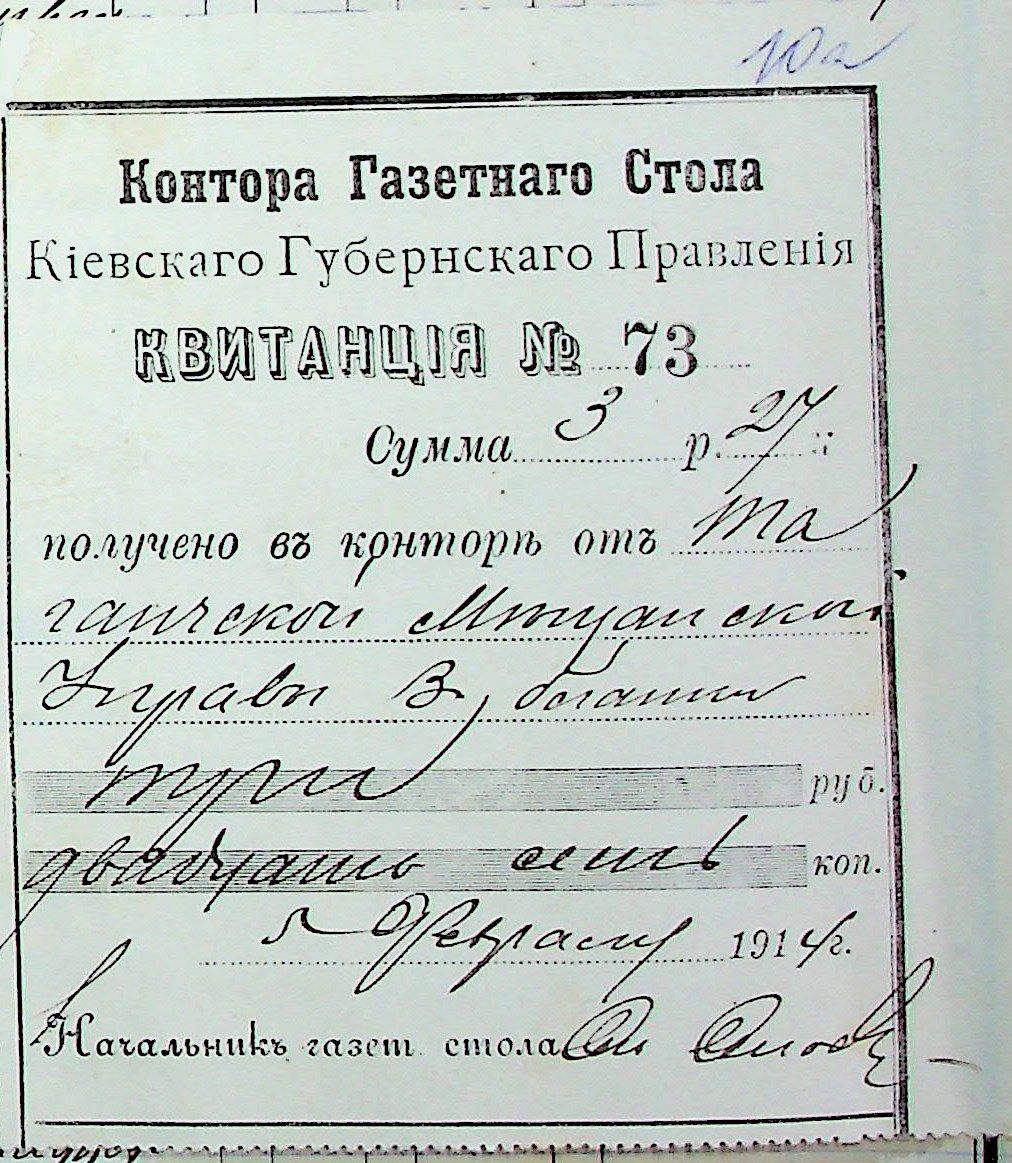 10а
Контора Газетнаго Стола
Кіевскаго Губернскаго Правленія
КВИТАНЦІЯ № 73
Сумма 3 р. 27 к
получено въ конторѣ отъ Та
ганчской Мѣщанской
Управы
три руб.
двадцать семь коп.
5 Февраля 1914 г.
Начальникъ газет. стола